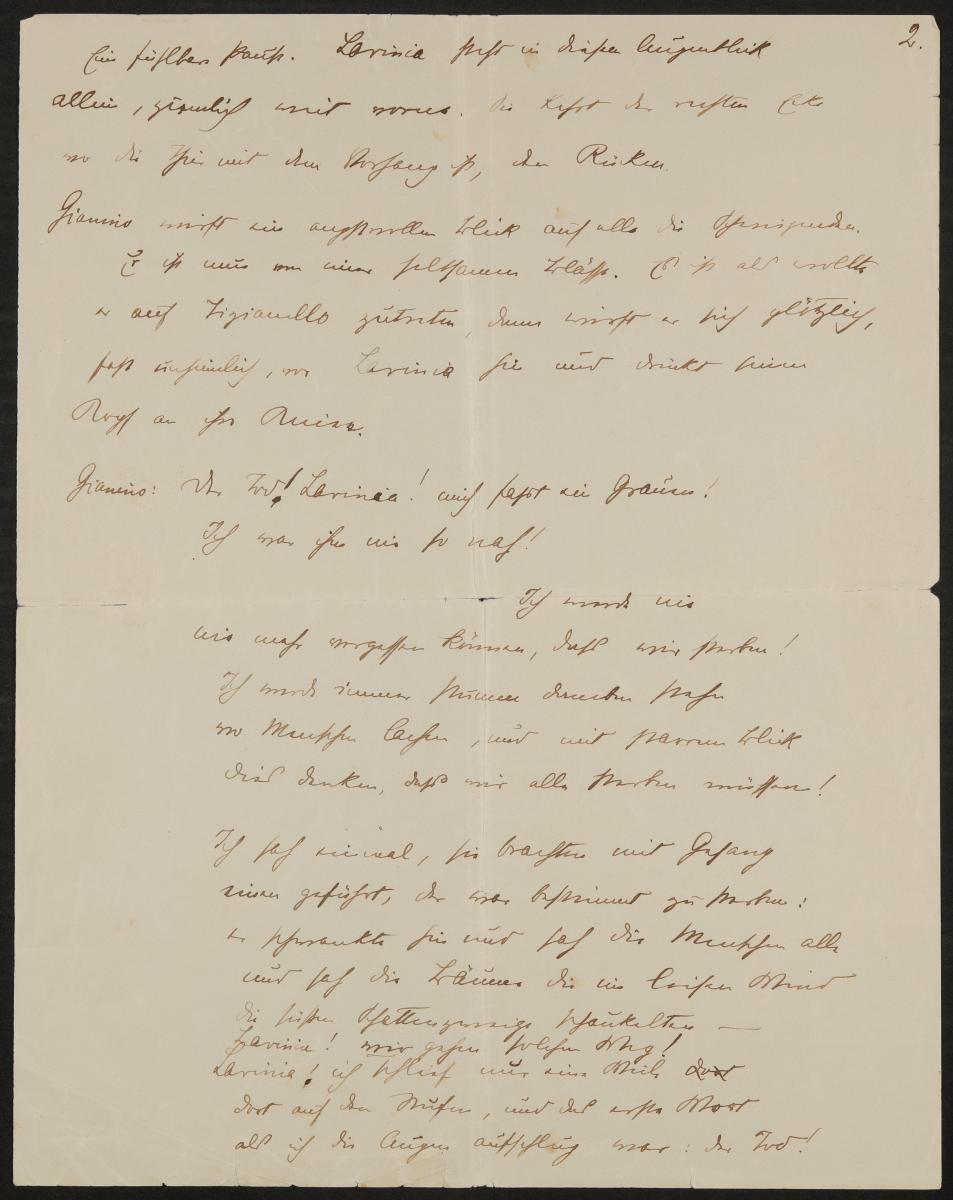 2.
Eine fühlbare Pause. Lavinia steht in diesem Augenblick
allein, ziemlich weit vorne. Sie kehrt der rechten Ecke
wo die Thür mit dem Vorhang ist, den Rücken.
Gianino wirft einen angstvollen Blick auf alle die Schweigenden.
Er ist nun von einer seltsamen Blässe. Es ist als wollte
er auf Tizianello zutreten, dann wirft er sich plötzlich,
fast unheimlich, vor Lavinia hin und drückt seinen
Kopf an ihre Kniee.
Gianino: Der Tod! Lavinia! mich fasst ein Grausen!
Ich war ihm nie so nah!
Ich werde nie
nie mehr vergessen können, dass wir sterben!
Ich werde immer stumm daneben stehn
wo Menschen lachen, und mit starrem Blick
dies denken, dass wir alle sterben müssen!
Ich sah einmal, sie brachten mit Gesang
einen geführt, der war bestimmt zu sterben:
er schwankte hin und sah die Menschen alle
und sah die Bäume die im leisen Wind
die süssen Schattenzweige schaukelten —
Lavinia! wir gehen solchen Weg!
Lavinia! ich schlief nur eine Weile dort
dort auf den Stufen, und das erste Wort
als ich die Augen aufschlug war: der Tod!